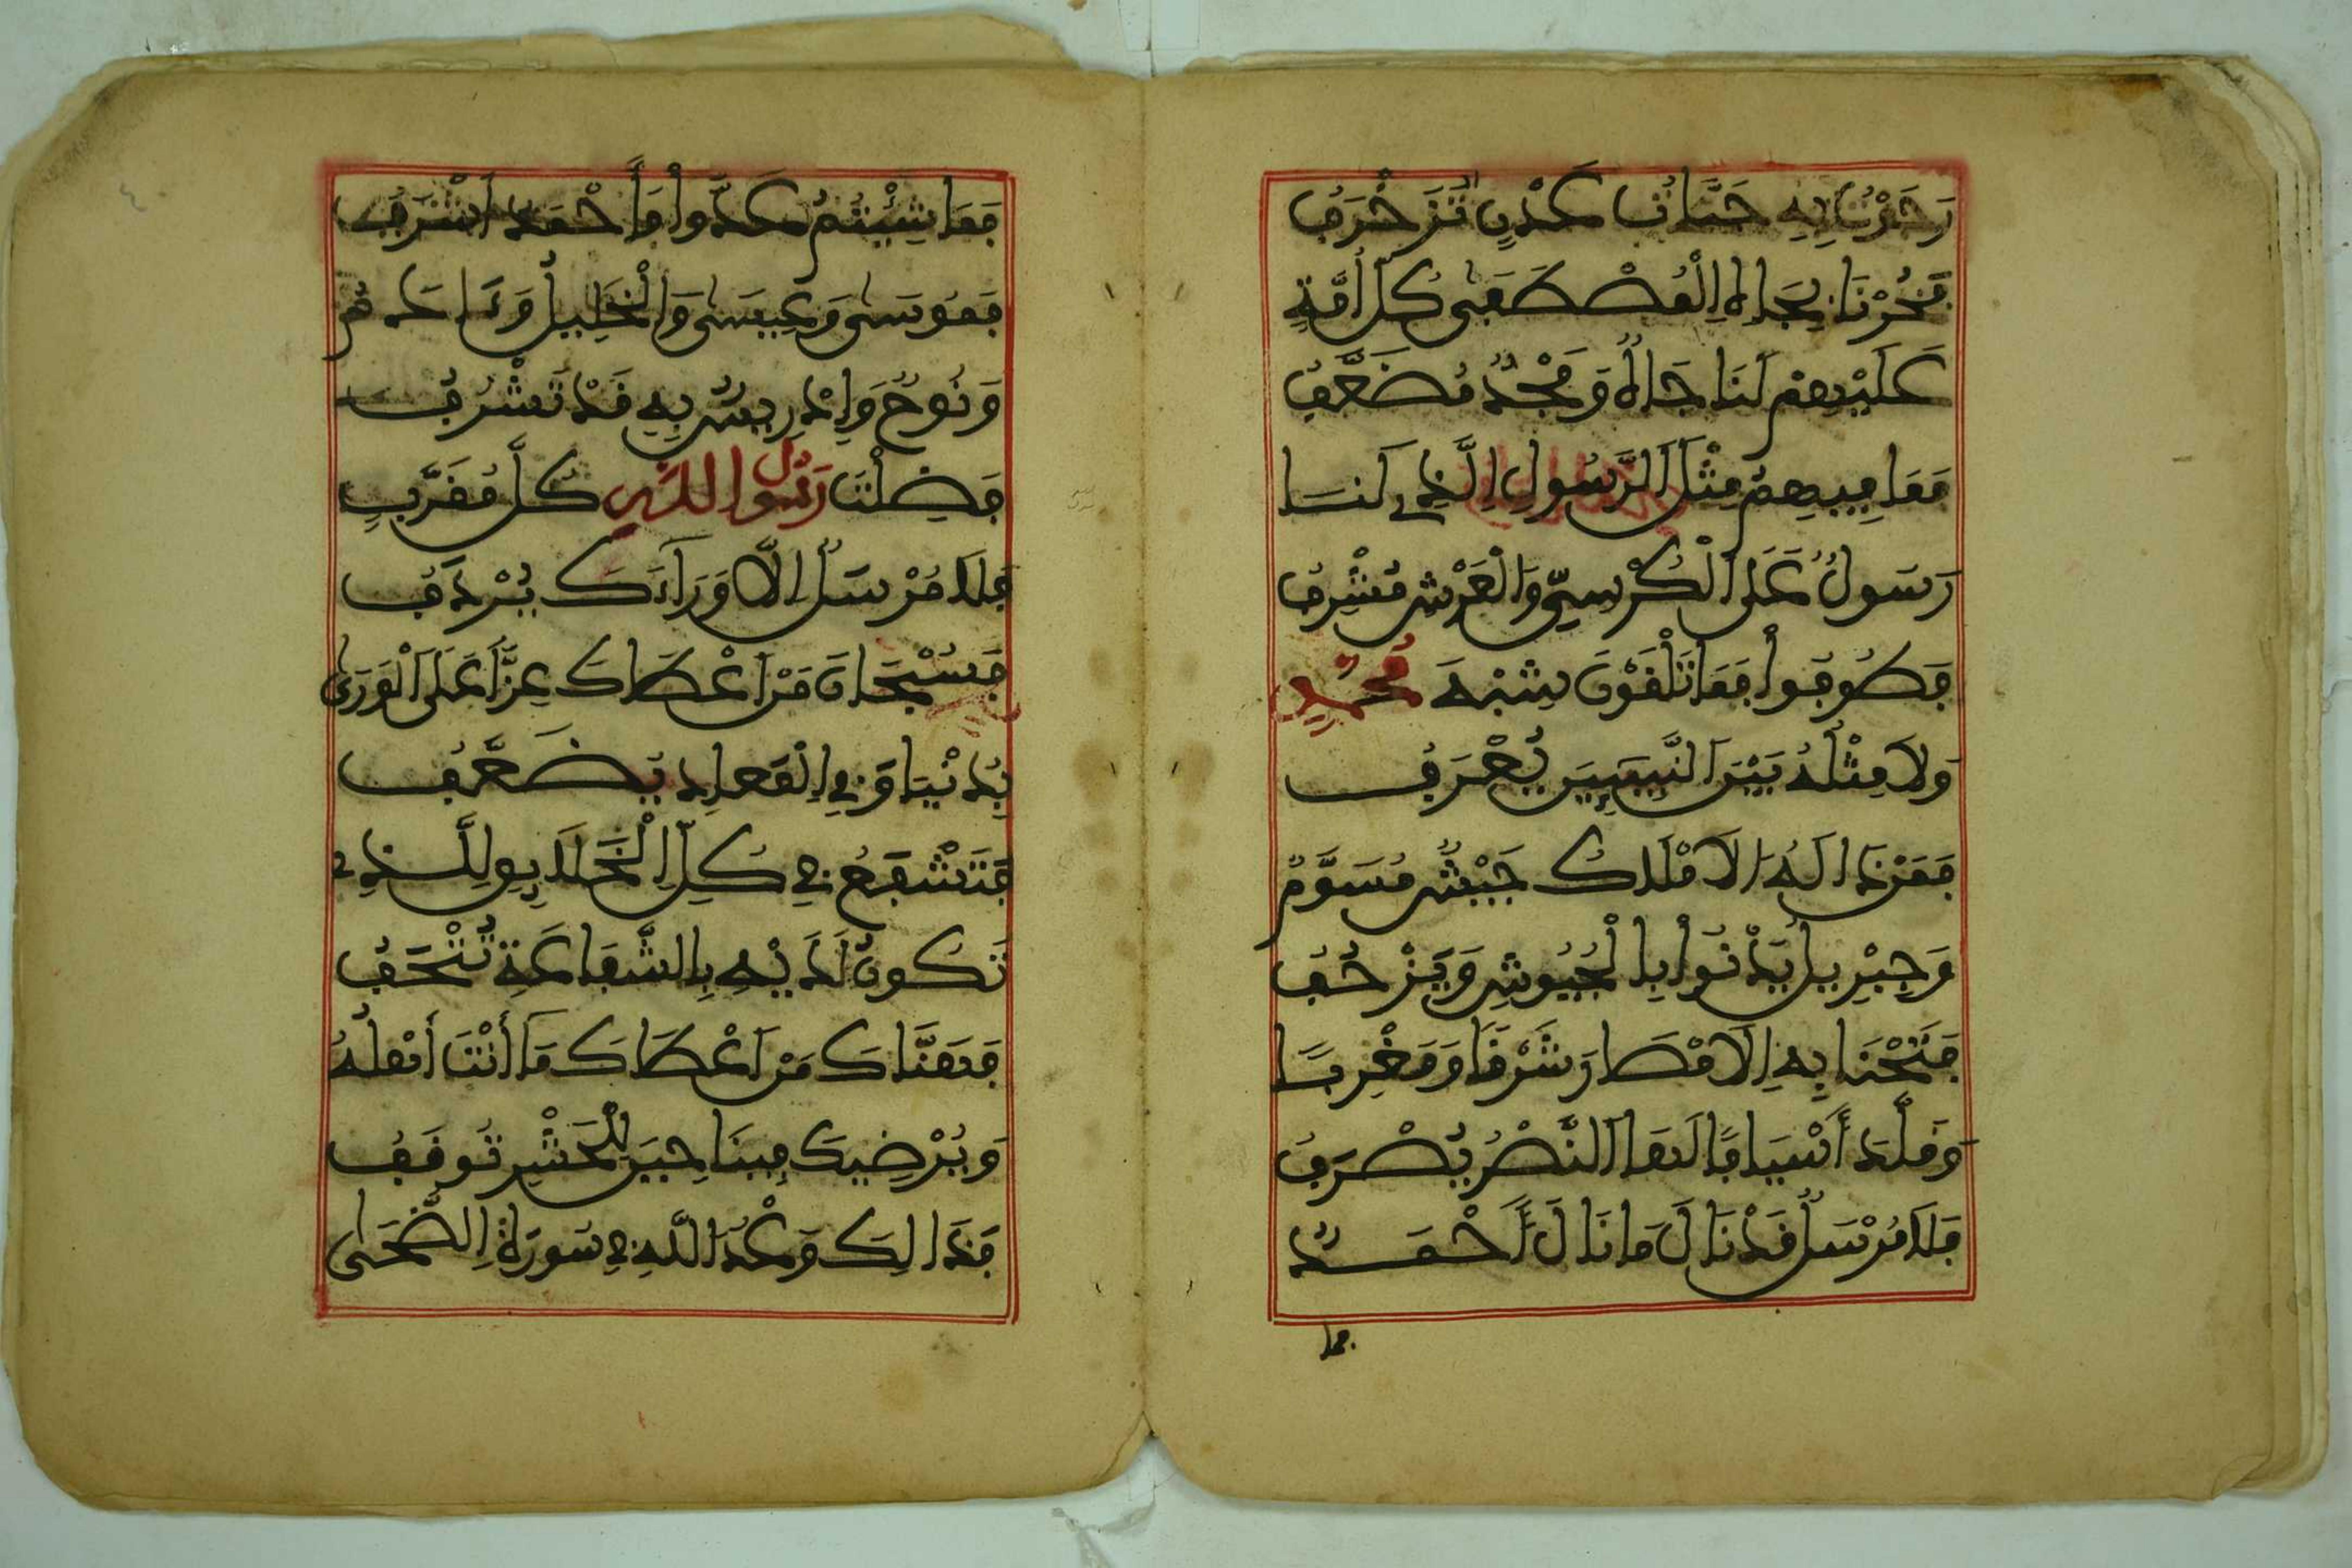 زَخَرْتُ بِهِ جَنَّاتُ عَدْنٍ تَزَخْرَفُ
فَخُرْنَا بِجَاهِ الْمُصْطَفَى كُلَّ أُمَّةٍ
عَلَيْهِمْ لَنَا جَاهٌ وَمَجْدٌ مُضَعَّفُ
فَمَا فِيهِمُ مِثْلَ الرَّسُولِ الَّذِي لَنَا
رَسُولٌ عَلَى الْكُرْسِيِّ وَالْعَرْشِ مُشْرِفُ
فَطُوفُوا فَمَا تَلْقَوْنَ شِبْهَ مُحَمَّدٍ
وَلَا مِثْلُهُ بَيْنَ النَّبِيِّينَ يُعْرَفُ
فَمَنْ ذَا لَهُ الْأَمْلَاكُ جَيْشٌ مُسَوَّمٌ
وَجِبْرِيلُ يَدْنُوا بِالْجُيُوشِ وَيَزْحُفُ
فَتَحْنَا بِهِ الْأَمْصَارَ شَرْقًا وَمَغْرِبًا
فَلَا مُرْسَلٌ قَدْ نَالَ مَا نَالَ أَحْمَدٌ
فما
فَمَا شِئْتُمُ عُدُّوا فَأَحْمَدُ أَشْرَفُ
فَمُوسَى وَعِيسَى وَالْخَلِيلُ وَءَادَمُ
وَنُوحٌ وَإِدْرِيسٌ بِهِ قَدْ تَشْرُفُ
فَضِلْتَ رَسُولَ اللَّهِ كُلَّ مُقَرَّبٍ
فَلَا مُرْسَلٌ إِلَّا وَرَآءَكَ يُرْدَفُ
فَسُبْحَانَ مَنْ أَعْطَاكَ عِزًّا عَلَى الْوَرَى
بِدُنْيَا وَفِي الْمَعَادِ يُضَعَّفُ
فَتَشْفَعُ فِي كُلِّ الْخَلَائِقِ لِلَّذِي
تَكُونُ لَدَيْهِ بِالشَّفَاعَةِ تُتْحَفُ
فَهَنَّاكَ مَنْ أَعْطَاكَ مَا أَنْتَ أَهْلُهُ
وَيُرْضِيكَ فِينَا حِينَ لِلْحَشْرِ تُوقَفُ
فَذَالِكَ وَعْدُ اللَّهِ فِي سُورَةِ الضُّحَى